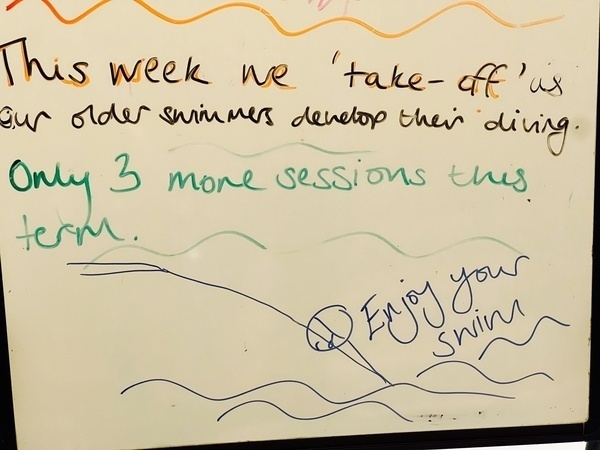 This week we 'take-off' as
our older swimmers develop their diving.
Only 3 more sessions this
term.
Enjoy your
swim